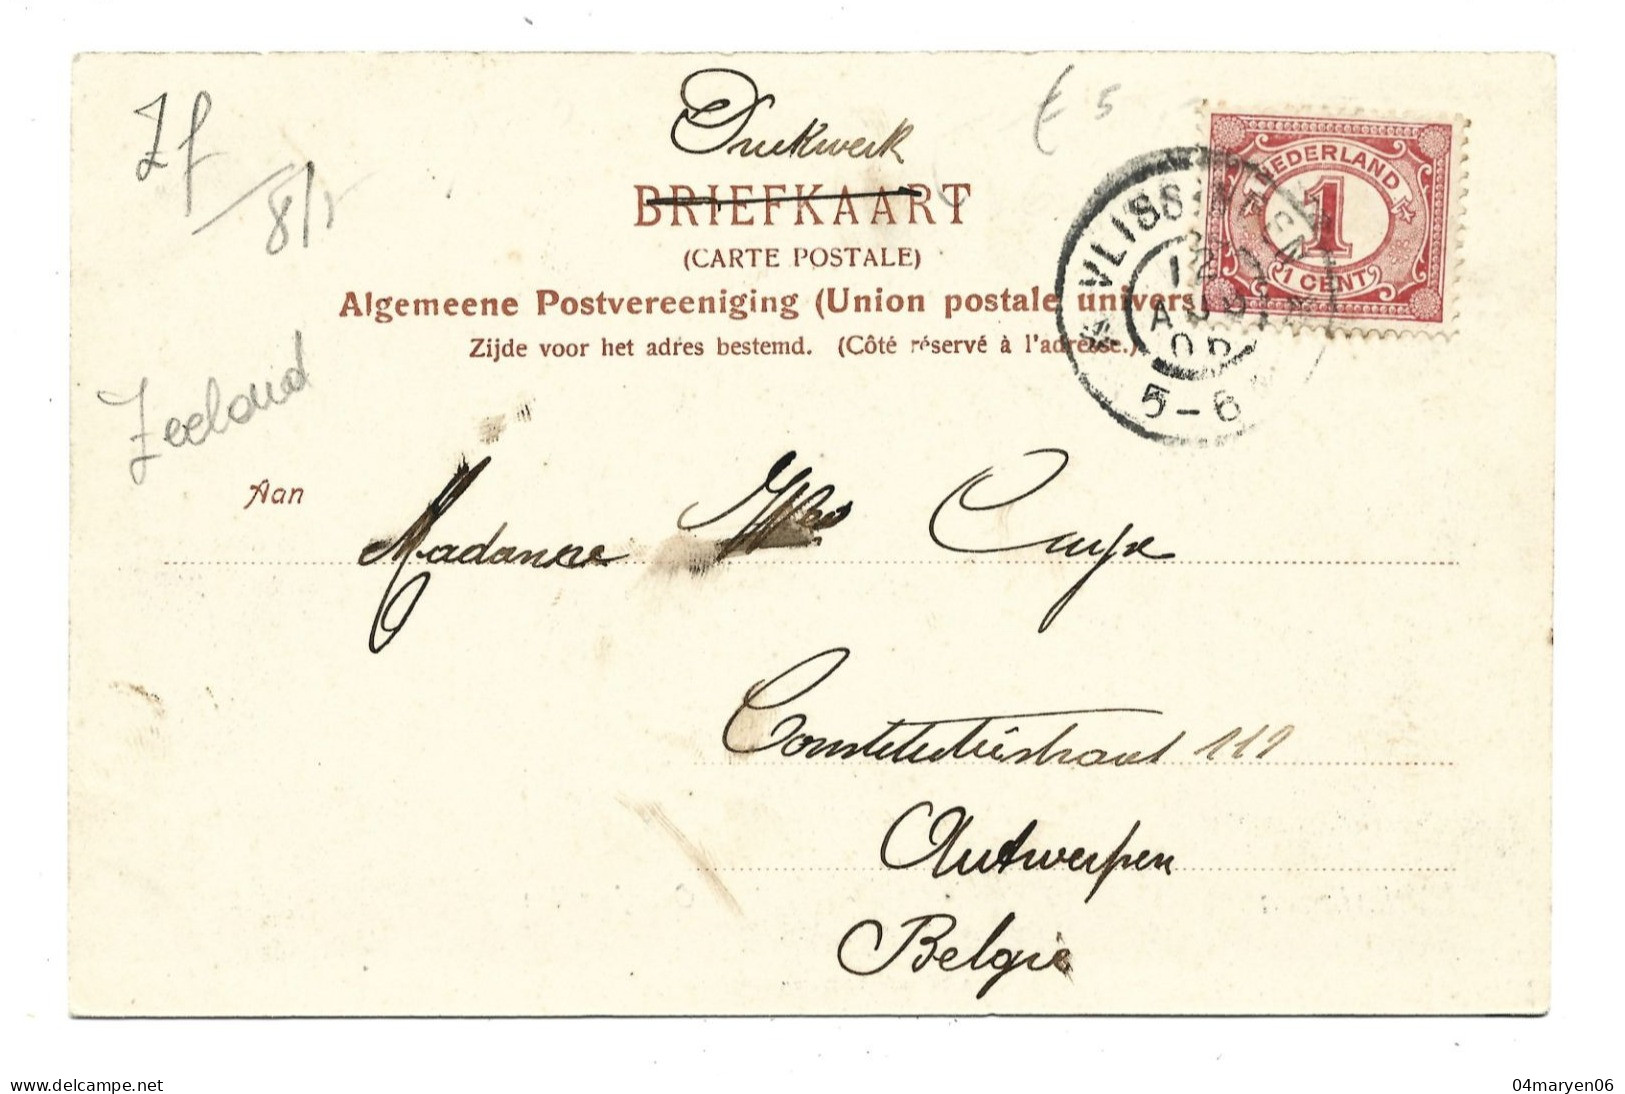 Zf
8/1
€ 5
Drukwerk
BRIEFKAART
(CARTE POSTALE)
Algemeene Postvereeniging (Union postale univers
Zijde voor het adres bestemd. (Côté réservé à l'adresse.)
NEDERLAND
1
1 CENT
VLISSINGEN
12
AUG
5-6
Zeeland
Aan
Madame
Constitutiestraat 112
Antwerpen
Belgie
www.delcampe.net
04maryen06